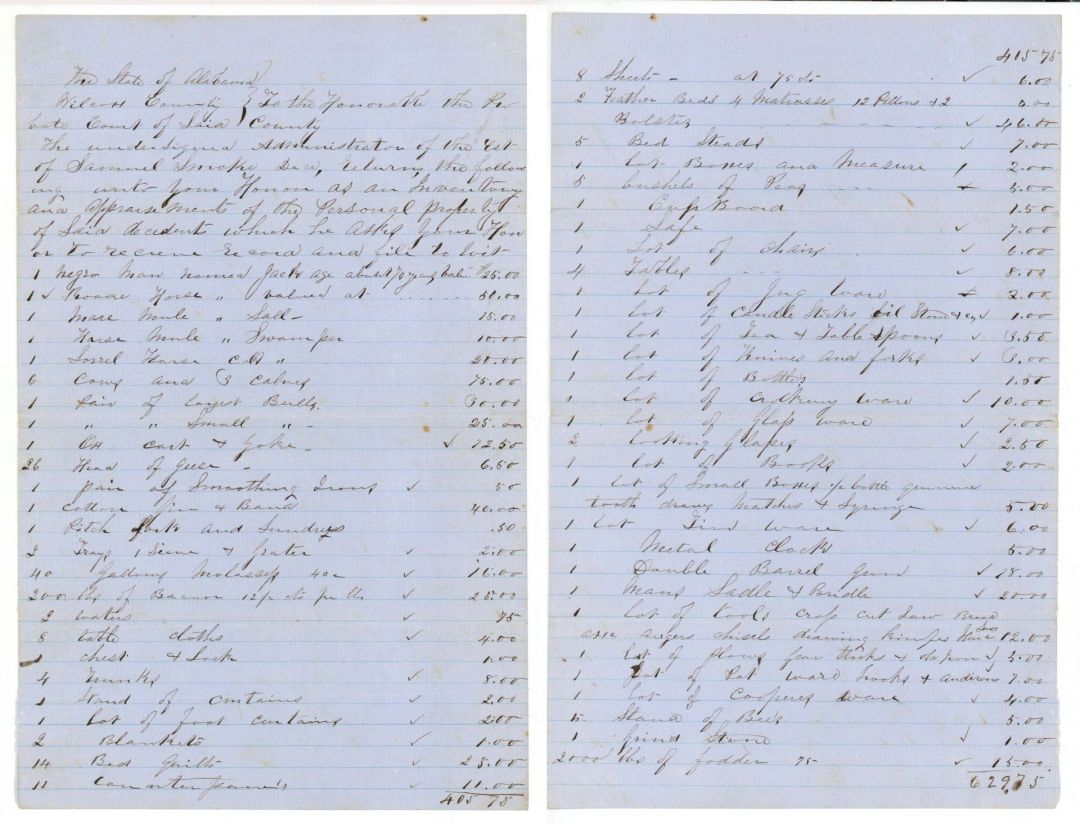 The State of Alabama
Wilcox County } To the Honorable the Pro
bate Court of Said County
The undersigned Administrator of the Est
of Samuel Smoke Dec, Returns the follow
ing unto Your Honour as an Inventory
and Appraisement of the Personal Property
of Said decedent which he asks Your Hon
or to recieve record and file to wit
1 negro man named Jack age about years, val 25.00
1 ✓ Roane Horse " valued at 50.00
1 Mare Mule " Sall 15.00
1 Horse Mule " Swamper 10.00
1 Sorrel Horse Colt " 20.00
6 Cows and 3 calves 75.00
1 Pair of largest Bulls 30.00
1 " " Small " 25.00
1 Ox cart & Yoke ✓ 12.50
26 Head of Geese 6.50
1 pair of Smoothing Irons ✓ 50
1 Cotton Gin & Band 40.00
1 Pitch fork and Sundries .50
2 Trays 1 Sieve & Grater ✓ 2.00
40 gallons Molasses 40c ✓ 16.00
200 lbs of Bacon 12½ cts per lb ✓ 25.00
2 waters ✓ 75
8 table cloths ✓ 4.00
1 chest & Lock 1.00
4 Trunks ✓ 8.00
1 Stand of curtains ✓ 2.00
1 lot of foot curtains ✓ 2.00
2 Blankets ✓ 1.00
14 Bed Quilts ✓ 23.00
11 Counterpanes ✓ 11.00
405 75
405 75
8 Sheets - at 75 cts ✓ 6.00
2 Feather Beds 4 Matrasses 12 Pillows & 2 5.00
Bolsters ✓ 46.00
5 Bed Steads ✓ 7.00
1 lot Boxes and Measure 2.00
5 bushels of Peas 5.00
1 Cup Board 1.50
1 Safe ✓ 7.00
1 Lot of chairs ✓ 6.00
4 Tables ✓ 8.00
1 Lot of Jug Ware 2.00
1 lot of Candle Sticks Oil Stone &c ✓ 1.00
1 lot of Tea & Table Spoons ✓ 3.50
1 lot of Knives and forks ✓ 3.00
1 lot of Bottles 1.50
1 lot of Crockery ware ✓ 10.00
1 lot of Glass Ware ✓ 7.00
2 looking Glasses ✓ 2.50
1 lot of Books ✓ 2.00
1 lot of Small Boxes bottle quinine
tooth drawg Matches & Syringe 5.00
1 lot Tin Ware ✓ 6.00
1 Metal Clock 5.00
1 Double Barrel Gun ✓ 18.00
1 Mans Sadle & Bridle ✓ 20.00
1 lot of tools cross cut Saw Broad
axe augers chisels drawing knifes Hand Saw 12.00
1 lot of plows gear Stocks & ✓ 5.00
1 Lot of Pot Ware hooks & andirons 7.00
1 lot of Coopers ware ✓ 4.00
5 Stand of Bees 5.00
1 Grind Stone ✓ 1.00
2000 lbs of fodder 75 ✓ 15.00
629.75